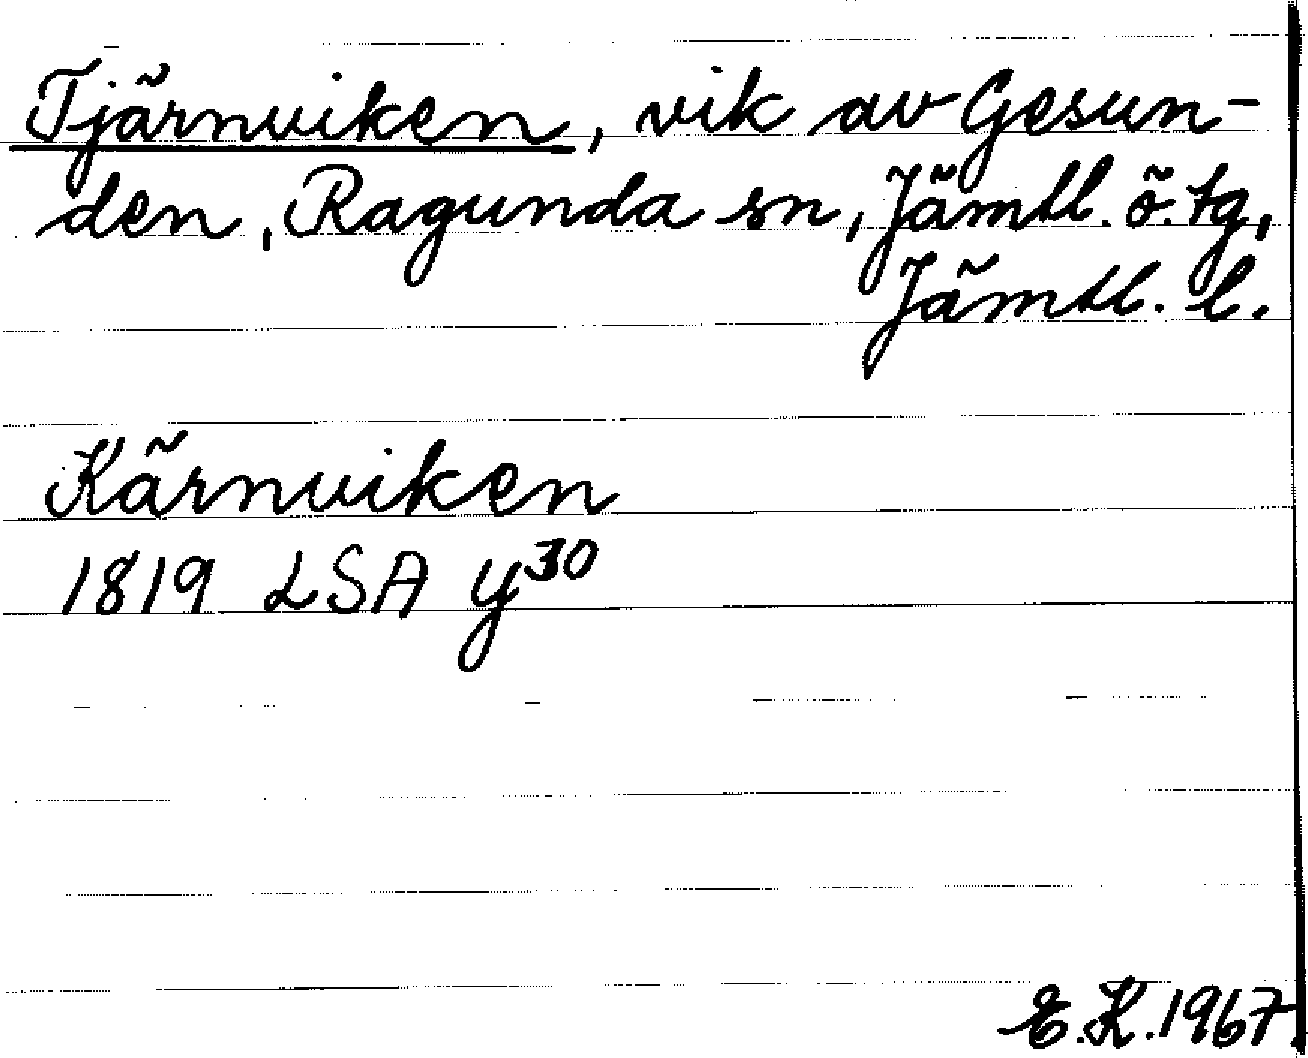 Tjärnviken, vik av Gesun-
den, Ragunda sn, Jämtl. ö. tg,
Jämtl. l.
Kärnviken
1819 LSA y30
E.K.1967.